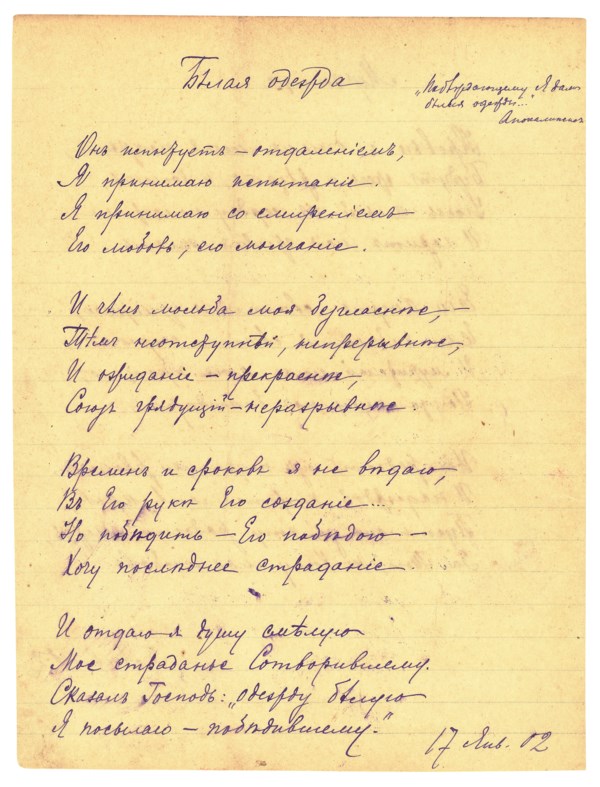 Бѣлая одежда
„Побѣждающему Я дам
бѣлыя одежды..."
Апокалипсис
Онъ испытуетъ – отдаленіемъ,
Я принимаю испытаніе.
Я принимаю со смиреніемъ
Его любовь, его молчаніе.
И чѣмъ мольба моя безгласнѣе, –
Тѣмъ неотступнѣй, непрерывнѣе,
И ожиданіе – прекраснѣе,
Союзъ грядущій – неразрывнѣе.
Временъ и сроковъ я не вѣдаю,
Въ Его рукѣ Его созданіе...
Но побѣдить – Его побѣдою –
Хочу послѣднее страданіе.
И отдаю я душу смѣлую
Мое страданье Сотворившему.
Сказалъ Господь: „одежду бѣлую
Я посылаю – побѣдившему."
17 Янв. 02